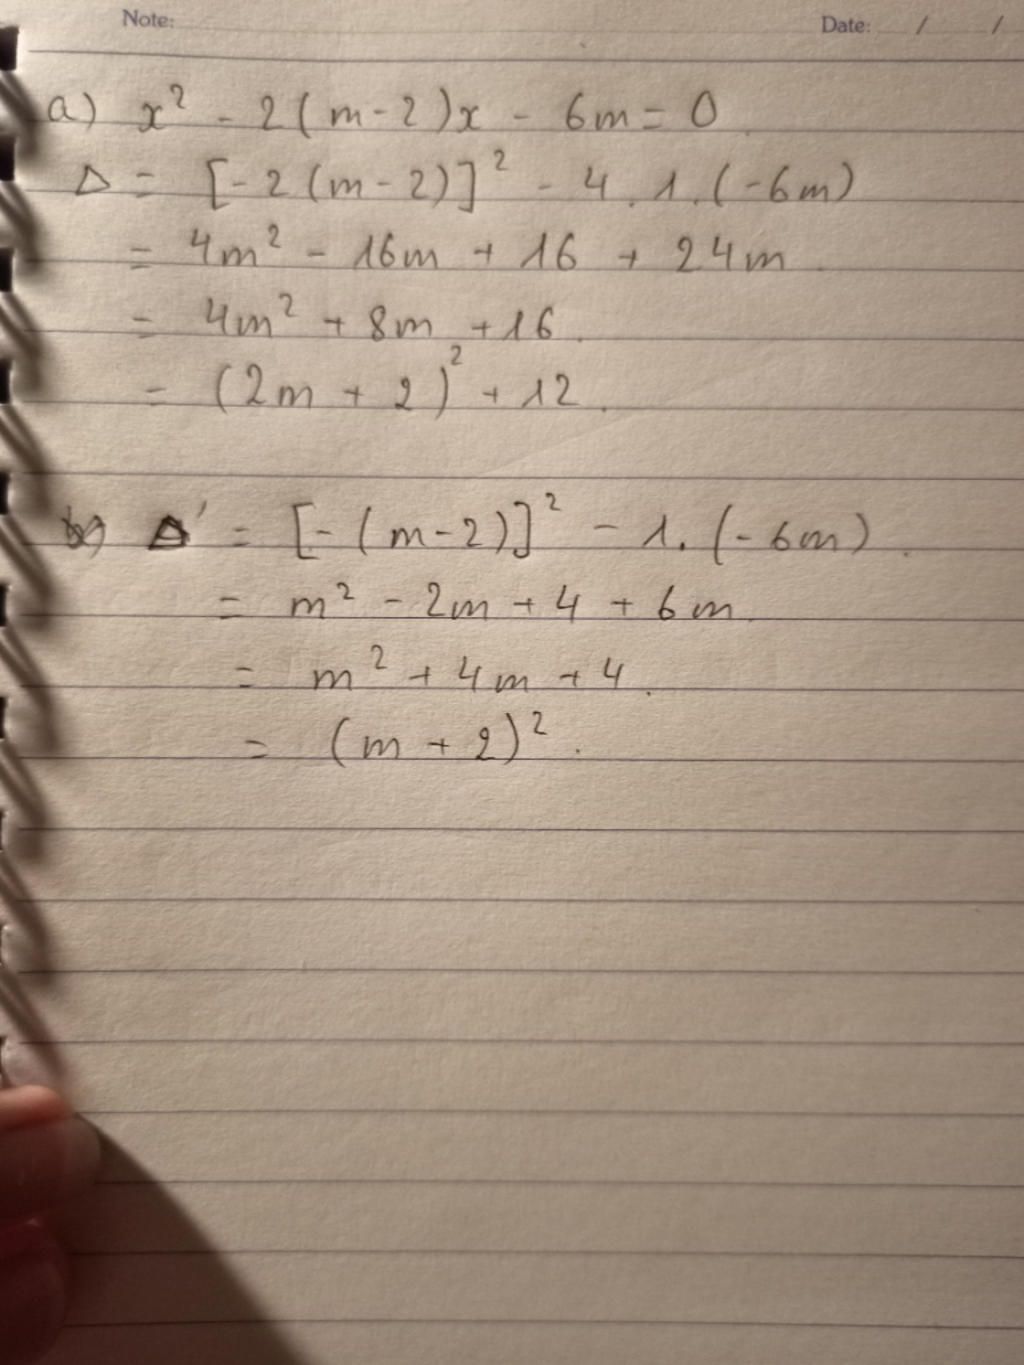 Note: Date: / /
a) x² - 2(m-2)x - 6m = 0
Δ = [-2(m-2)]² - 4.1.(-6m)
= 4m² - 16m + 16 + 24m.
= 4m² + 8m + 16.
= (2m + 2)² + 12.
Δ' = [-(m-2)]² - 1.(-6m).
= m² - 2m + 4 + 6m.
= m² + 4m + 4.
= (m + 2)².